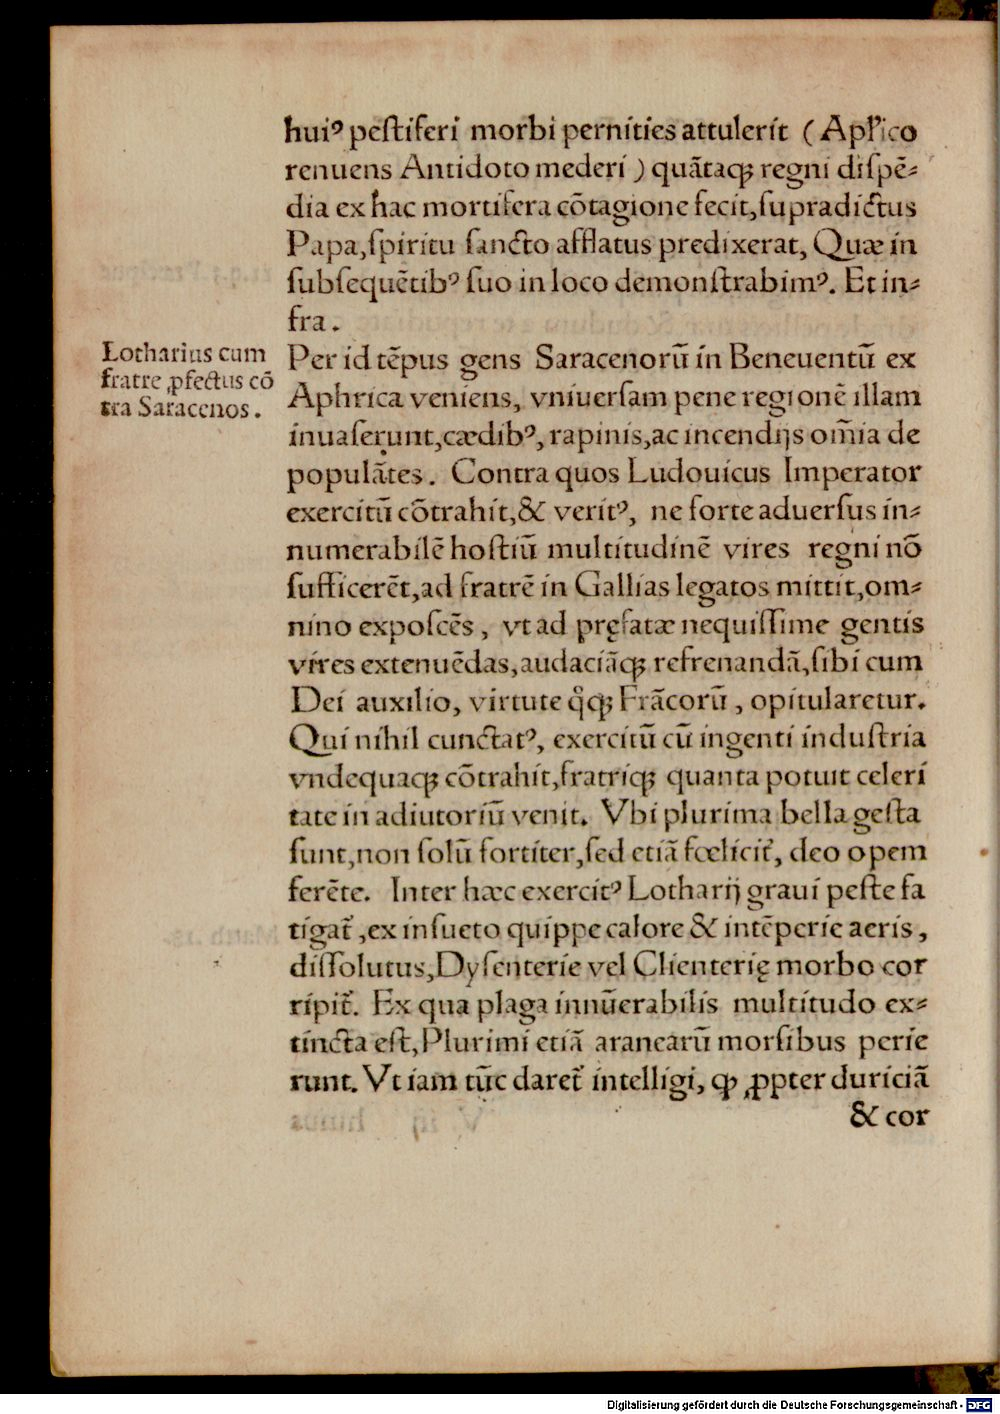 huiꝰ peſtiferi morbi pernities attulerit (Apl̕ico
renuens Antidoto mederi) quãtaqꝫ regni diſpẽ-
dia ex hac mortifera cõtagione fecit, ſupradictus
Papa, ſpiritu ſancto afflatus predixerat, Quæ in
ſubſequẽtibꝰ ſuo in loco demonſtrabimꝰ. Et in-
fra.
Lotharius cum
fratre ꝓfectus cõ
tra Saracenos.
Per id tẽpus gens Saracenorũ in Beneuentũ ex
Aphrica veniens, vniuerſam pene regionẽ illam
inuaſerunt, cædibꝰ, rapinis, ac incendijs om̃ia de
populãtes. Contra quos Ludouicus Imperator
exercitũ cõtrahit, & veritꝰ, ne forte aduerſus in-
numerabilẽ hoſtiũ multitudinẽ vires regni nõ
ſufficerẽt, ad fratrẽ in Gallias legatos mittit, om-
nino expoſcẽs, vt ad pręfatæ nequiſſime gentis
vires extenuẽdas, audaciãqꝫ refrenandã, ſibi cum
Dei auxilio, virtute qͥqꝫ Frãcorũ, opitularetur.
Qui nihil cunctatꝰ, exercitũ cũ ingenti induſtria
vndequaqꝫ cõtrahit, fratriqꝫ quanta potuit celeri
tate in adiutoriũ venit. Vbi plurima bella geſta
ſunt, non ſolũ fortiter, ſed etiã fœlicit̕, deo opem
ferẽte. Inter hæc exercitꝰ Lotharij graui peſte fa
tigat̕, ex inſueto quippe calore & intẽperie aeris,
diſſolutus, Dyſenterie vel Clienterię morbo cor
ripit̕. Ex qua plaga innũerabilis multitudo ex-
tincta eſt, Plurimi etiã aranearũ morſibus perie
runt. Vt iam tũc daret̕ intelligi, ꝙ ꝓpter duriciã
& cor
Digitalisierung gefördert durch die Deutsche Forschungsgemeinschaft - DFG